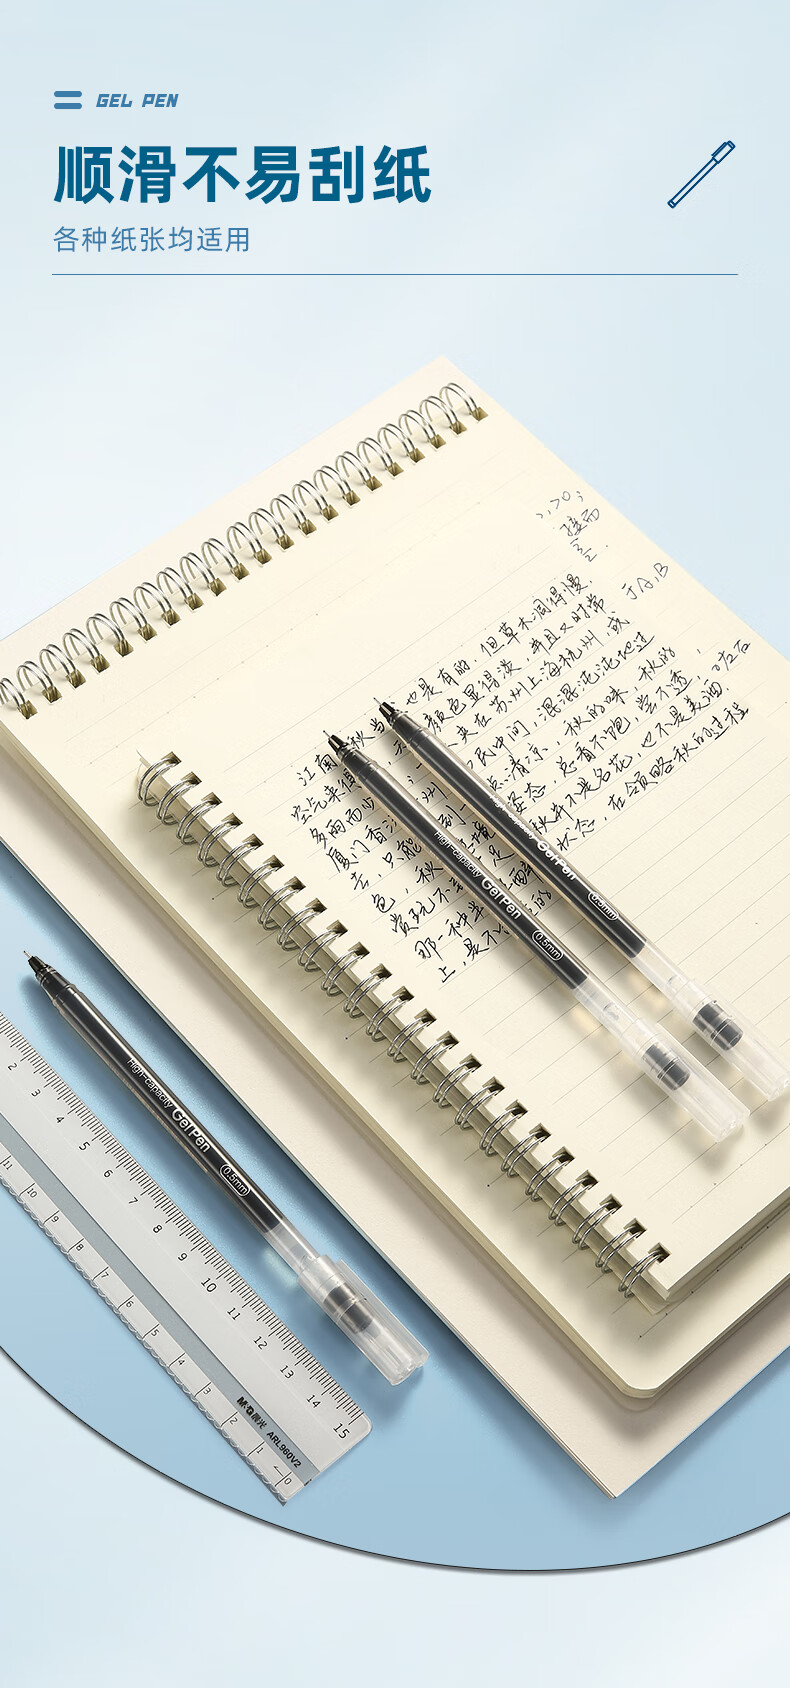 GEL PEN
顺滑不易刮纸
各种纸张均适用
接而
于A,B
江南 秋当 也是有的,但草木凋得慢,
空气来得 颜色显得淡,并且又时常
多雨而少 夹在苏州上海杭州,或
厦门香 州 民中间,混混沌沌地过
去,只能 到一点 清凉,秋的味,秋的
色,秋 境 姿态,总看不饱,尝不透,
赏玩不 足 秋并不是名花,也不是美酒,
那一种半 的 状态,在领略秋的过程
上,是不 的
High-capacity Gel Pen 0.5mm
High-capacity Gel Pen 0.5mm
High-capacity Gel Pen 0.5mm
2 3 4 5 6 7 8 9 10 11 12 13 14 15
11 10 9 8 7 6 5 4 3 2 1 0
M&G晨光 ARL960V2